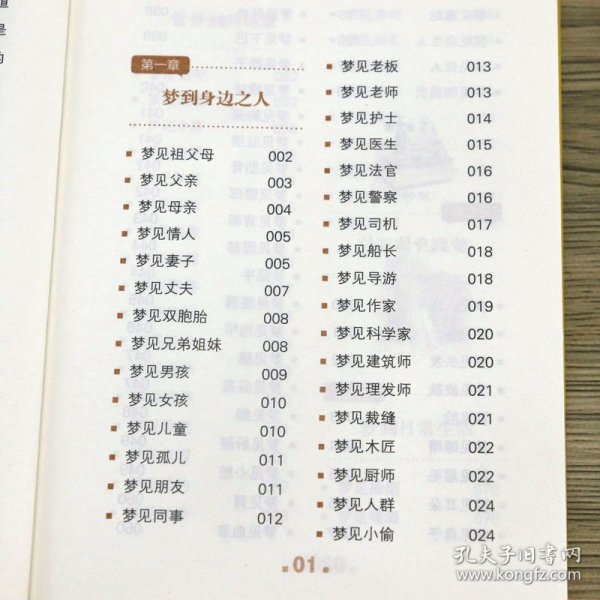 道
是
的
第一章
梦到身边之人
梦见祖父母 002
梦见父亲 003
梦见母亲 004
梦见情人 005
梦见妻子 005
梦见丈夫 007
梦见双胞胎 008
梦见兄弟姐妹 008
梦见男孩 009
梦见女孩 010
梦见儿童 010
梦见孤儿 011
梦见朋友 011
梦见同事 012
梦见老板 013
梦见老师 013
梦见护士 014
梦见医生 015
梦见法官 016
梦见警察 016
梦见司机 017
梦见船长 018
梦见导游 018
梦见作家 019
梦见科学家 020
梦见建筑师 020
梦见理发师 021
梦见裁缝 021
梦见木匠 022
梦见厨师 022
梦见人群 024
梦见小偷 024
01
孔夫子旧书网
www.kongfz.com